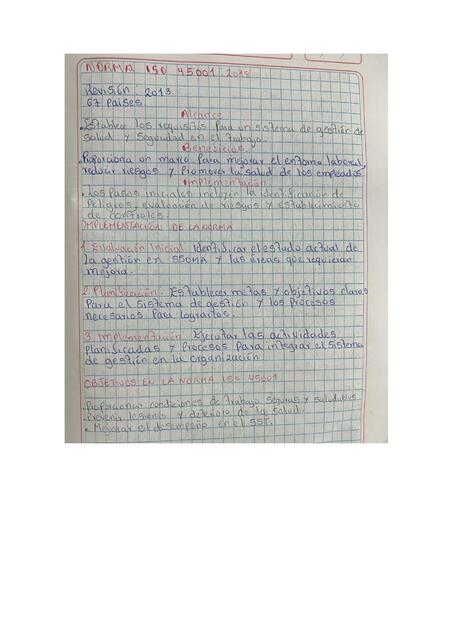 NORMA ISO 45001 2018
Revisión 2013
67 Paises
Alcance
• Establece los requisitos Para un sistema de gestión de
salud y seguridad en el trabajo.
Beneficios
• Proporciona un marco Para mejorar el entorno laboral,
reducir riesgos y Promover la salud de los empleados
Implementación
• Los Pasos iniciales incluyen la identificación de
Peligros, evaluación de riesgos y establecimiento
de controles.
IMPLEMENTACION DE LA NORMA
1. Evaluación Inicial Identificar el estado actual de
la gestión en SSOMA y las áreas que requieran
mejora.
2. Planificación: Establecer metas y objetivos claros
Para el sistema de gestión y los Procesos
necesarios Para lograrlos.
3. Implementación Ejecutar las actividades
Planificadas y Procesos Para integrar el sistema
de gestión en la organización
OBJETIVOS EN LA NORMA ISO 45001
• Proporcionar condiciones de trabajo seguras y saludables
• Prevenir lesiones y deterioro de la salud.
• Mejorar el desempeño en el SST.